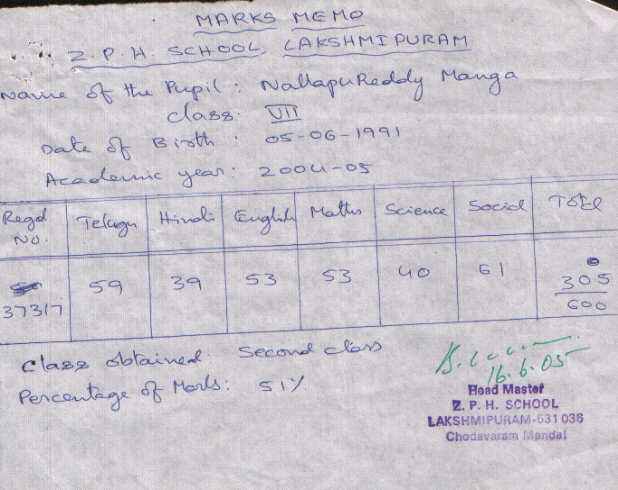 MARKS MEMO
Z. P. H. SCHOOL, LAKSHMIPURAM
Name of the Pupil : NallapuReddy Manga
class: VII
Date of Birth : 05-06-1991
Academic year: 2004-05
Regd No. Telugu Hindi English Maths Science Social Total
37317 59 39 53 53 40 61 305/600
Class obtained: Second class
Percentage of Marks: 51%
16.6.05
Head Master
Z. P. H. SCHOOL
LAKSHMIPURAM-531 036
Chodavaram Mandal